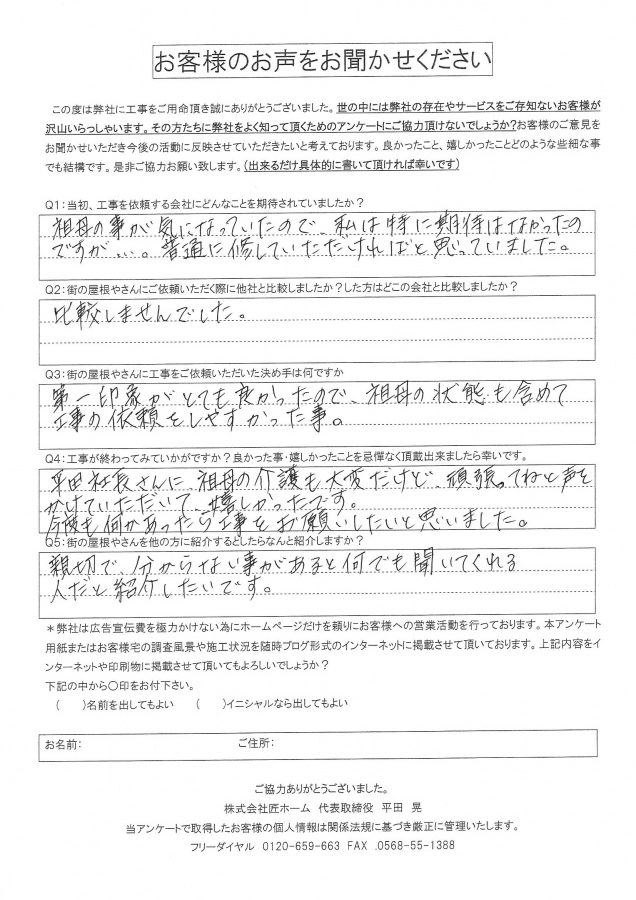 お客様のお声をお聞かせください
この度は弊社に工事をご用命頂き誠にありがとうございました。世の中には弊社の存在やサービスをご存知ないお客様が
沢山いらっしゃいます。その方たちに弊社をよく知って頂くためのアンケートにご協力頂けないでしょうか?お客様のご意見を
お聞かせいただき今後の活動に反映させていただきたいと考えております。良かったこと、嬉しかったことどのような些細な事
でも結構です。是非ご協力お願い致します。(出来るだけ具体的に書いて頂ければ幸いです)
Q1:当初、工事を依頼する会社にどんなことを期待されていましたか?
祖母の事が気になっていたので、私は特に期待はなかったの
ですが…。普通に修していただければと思っていました。
Q2:街の屋根やさんにご依頼いただく際に他社と比較しましたか?した方はどこの会社と比較しましたか?
比較しませんでした。
Q3:街の屋根やさんに工事をご依頼いただいた決め手は何ですか
第一印象がとても良かったので、祖母の状態も含めて
工事の依頼をしやすかった事。
Q4:工事が終わってみていかがですか?良かった事・嬉しかったことを忌憚なく頂戴出来ましたら幸いです。
平田社長さんに、祖母の介護も大変だけど、頑張ってねと声を
かけていただいて、嬉しかったです。
今後も何かあったら工事をお願いしたいと思いました。
Q5:街の屋根やさんを他の方に紹介するとしたらなんと紹介しますか?
親切で、分からない事があると何でも聞いてくれる
人だと紹介したいです。
*弊社は広告宣伝費を極力かけない為にホームページだけを頼りにお客様への営業活動を行っております。本アンケート
用紙またはお客様宅の調査風景や施工状況を随時ブログ形式のインターネットに掲載させて頂いております。上記内容をイ
ンターネットや印刷物に掲載させて頂いてもよろしいでしょうか?
下記の中から○印をお付下さい。
( )名前を出してもよい ( )イニシャルなら出してもよい
お名前: ご住所:
ご協力ありがとうございました。
株式会社匠ホーム 代表取締役 平田 晃
当アンケートで取得したお客様の個人情報は関係法規に基づき厳正に管理いたします。
フリーダイヤル 0120-659-663 FAX .0568-55-1388